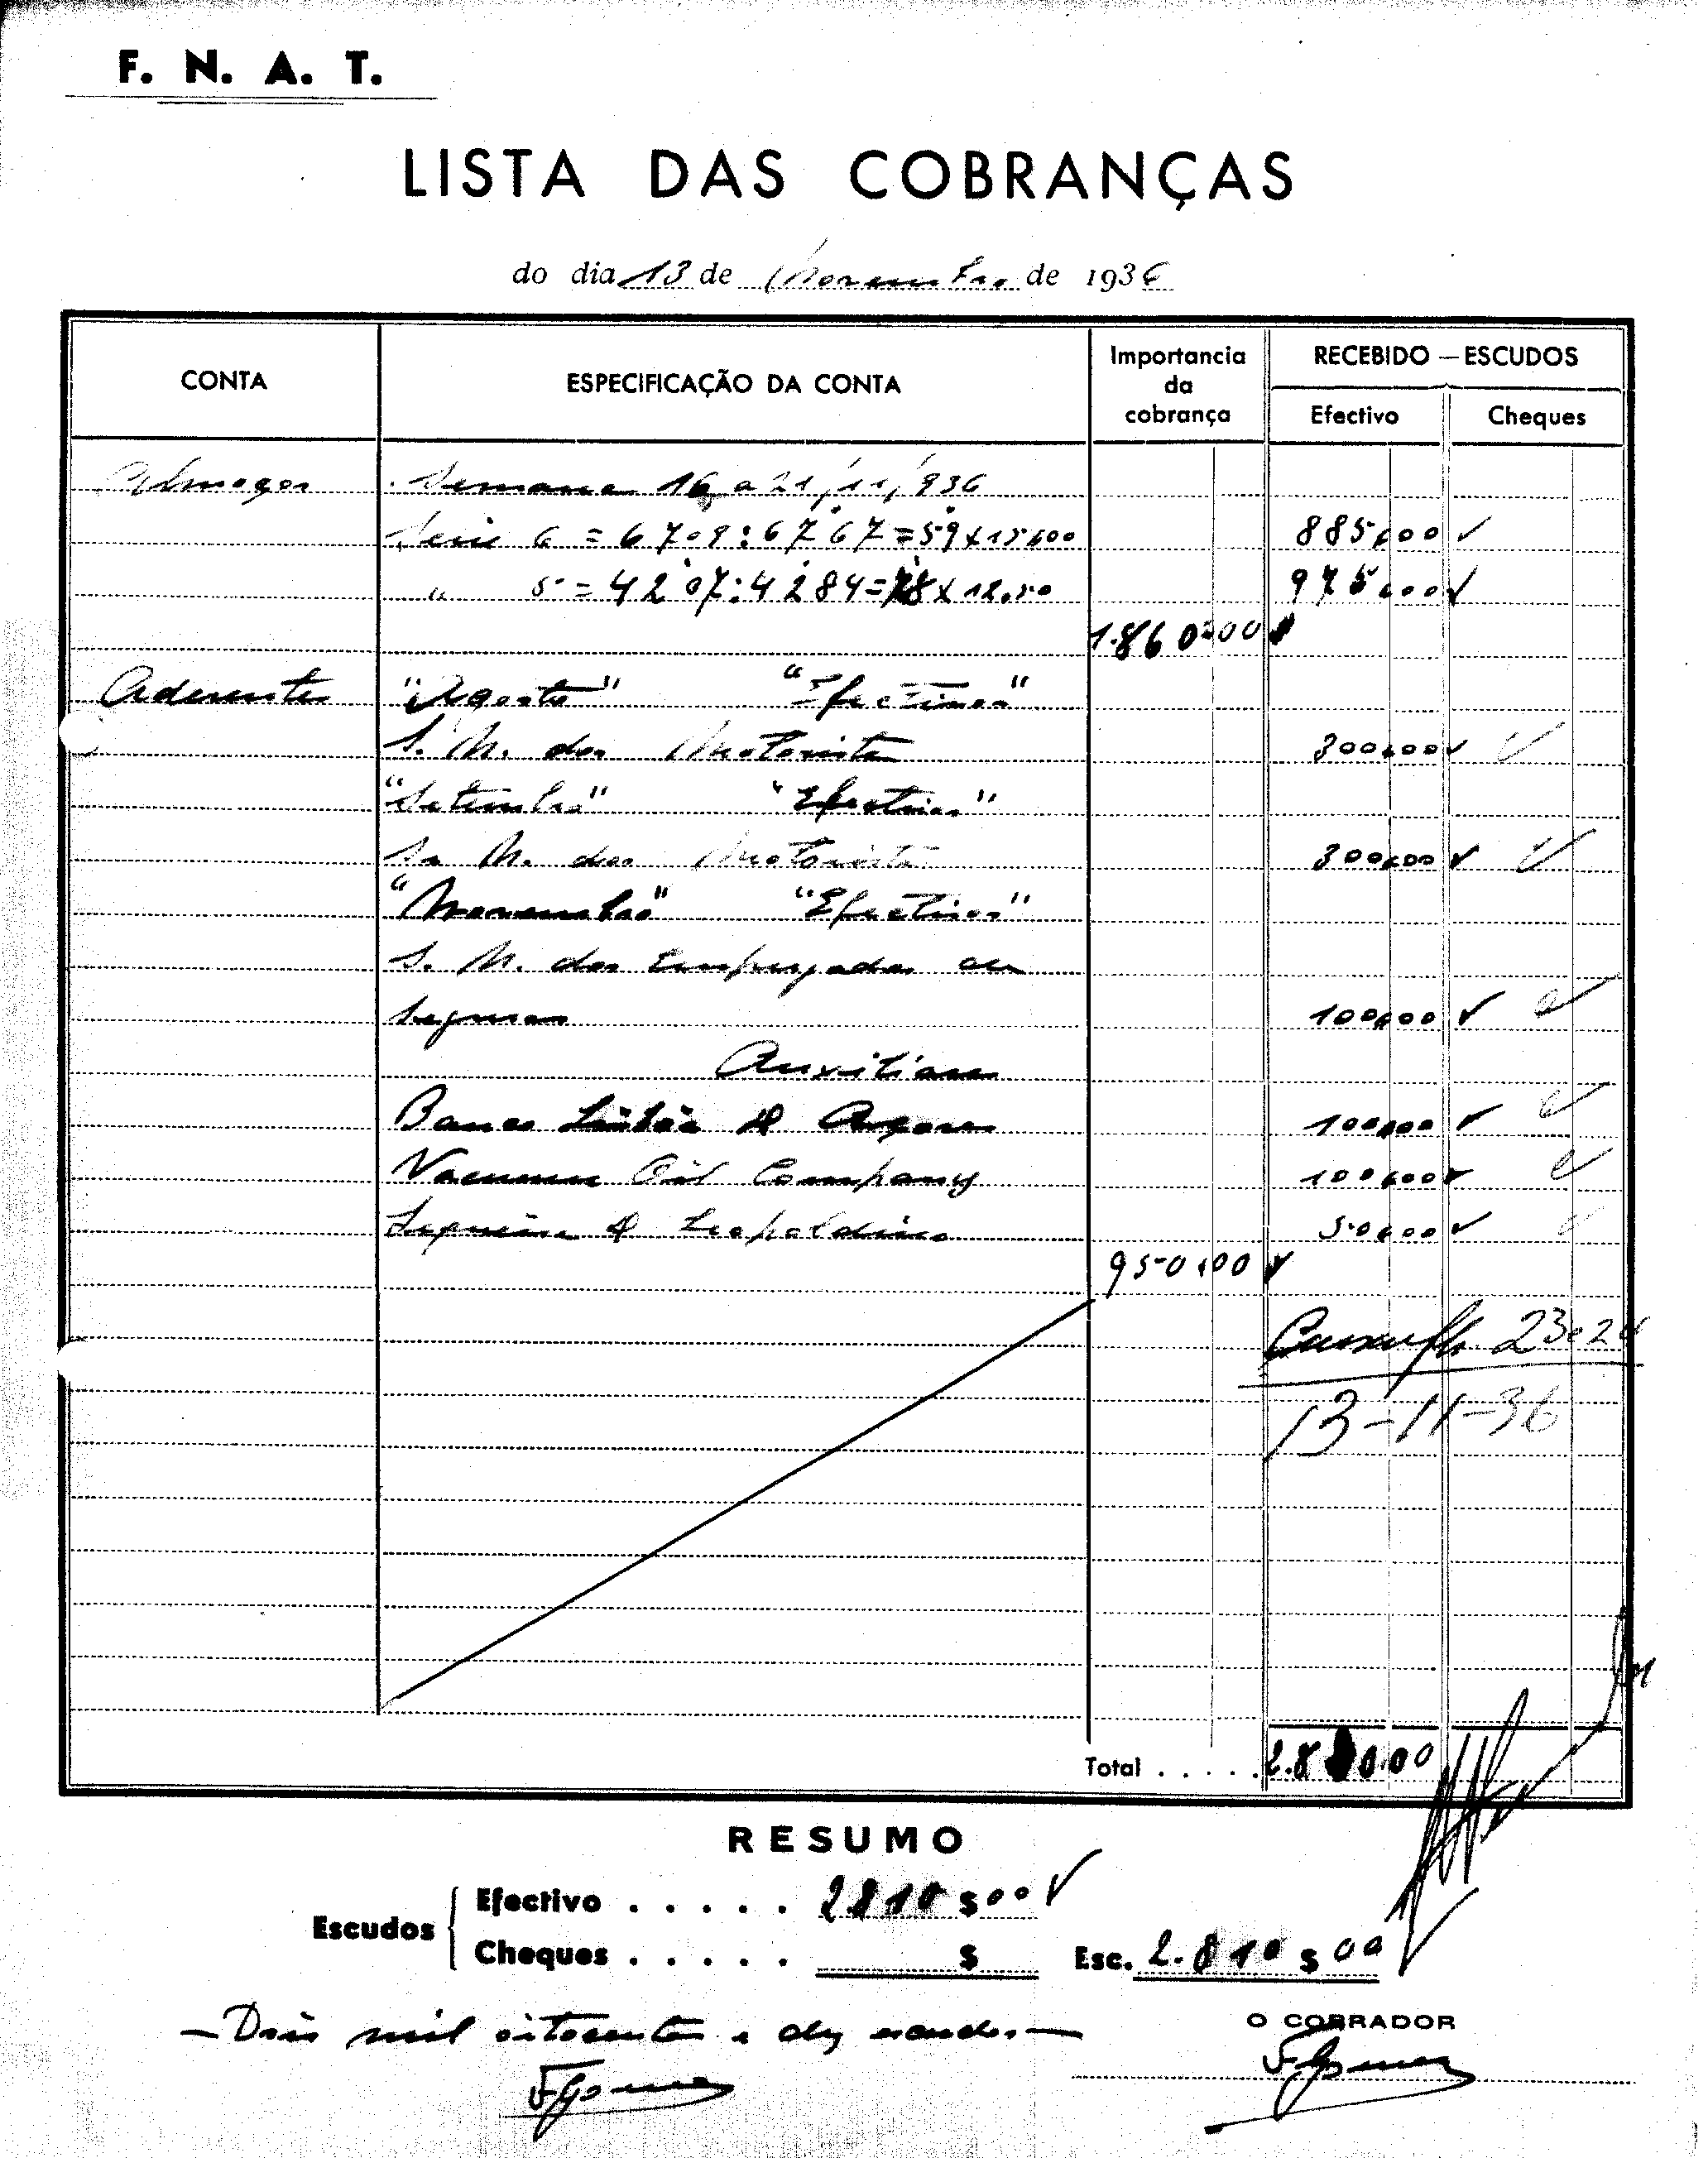 F. N. A. T.
LISTA DAS COBRANÇAS
do dia 13 de Novembro de 1936
CONTA
ESPECIFICAÇÃO DA CONTA
Importancia da cobrança
RECEBIDO — ESCUDOS
Efectivo
Cheques
Almoços Semana 16 a 21/11/936
Serie 6 = 6709:6767 = 59 x 15$00 885$00
" 5 = 4207:4284 = 78 x 12.50 975$00
1.860$00
Aderentes "Agosto" "Efectivos"
S. N. dos Motoristas 300$00
"Setembro" "Efectivos"
S. N. dos Motoristas 300$00
"Novembro" "Efectivos"
S. N. dos Empregados de
Seguros 100$00
Auxiliares
Banco Lisbôa & Açores 100$00
Vacuum Oil Company 100$00
Sequeira & Leopoldino 50$00
950$00
23 e 24
13-11-36
Total . . . . . 2.810.00
RESUMO
Escudos
Efectivo . . . . . 2810$00
Cheques . . . . . $
Esc. 2.810$00
— Dois mil oitocentos e dez escudos —
O COBRADOR
FGomes
FGomes